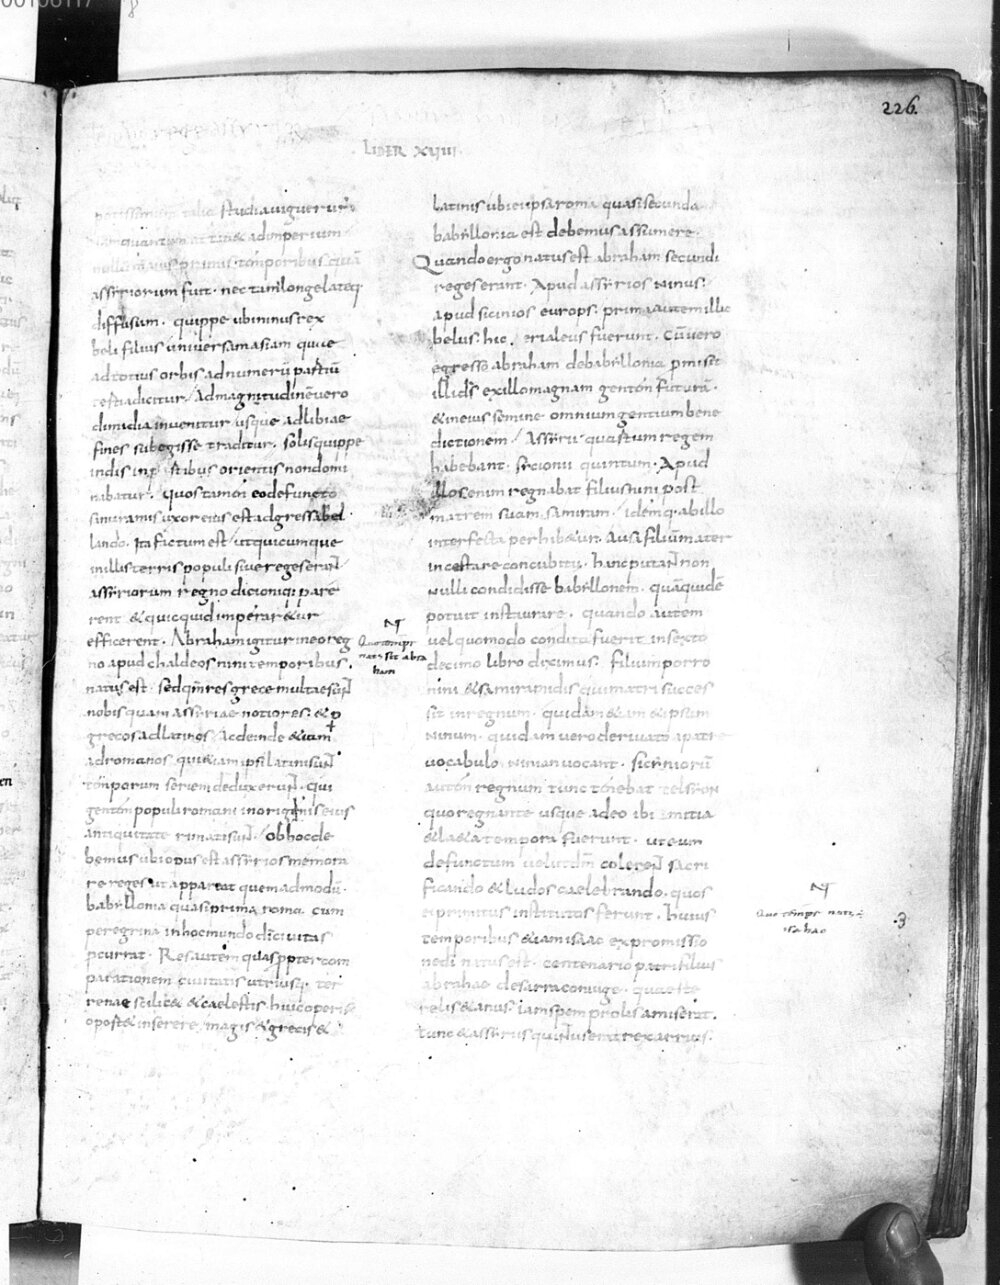 226.
LIBER XVIII
talia studia viguerunt
quantum ad imperium
primis temporibus
assyriorum fuit. nec tam longe lateq;
diffusam. quippe ubi ninus rex
beli filius universam asiam quae
ad totius orbis ad numerum partium
tertia dicitur. Ad magnitudinem vero
dimidia invenitur usque ad libiae
fines subegisse traditur. solis quippe
indis in partibus orientis non domi
nabatur. quos tamen eo defuncto
samiramis uxor eius est adgressa bel
lando. Ita factum est ut quicumque
in illis terris populi sive reges erant
assyriorum regno dicioniq; pare
rent & quicquid imperar&ur
efficerent. Abraham igitur in eo reg
no apud chaldeos nini temporibus
natus est. sed qm res grece multae sunt
nobis quam assyriae notiores. & p
grecos ad latinos. ac deinde &iam
ad romanos qui &iam ipsi latini sunt
temporum seriem deduxerunt. qui
gentem populi romani in originis eius
antiquitate rimati sunt. ob hoc de
bemus ubi opus est assyrios memora
re reges ut appareat quem ad modu
babyllonia quasi prima roma. cum
peregrina in hoc mundo di civitas
pcurrat. Res autem quas ppter com
parationem civitatis utriusq; ter
renae scilic& & caelestis. huic operi
oport& inserere. magis & grecis &
latinis ubi et ipsa roma quasi secunda
babyllonia est debemus assumere.
Quando ergo natus est abraham secundi
reges erant. Apud assyrios ninus.
apud sicinios europs. primi autem illic
belus. hic erialeus fuerunt. Cu vero
egresso abraham de babyllonia pmisit
illi ds ex illo magnam gentem futura.
& in eius semine omnium gentium bene
dictionem. Assyrii quartum regem
habebant. sicionii quintum. Apud
illos enim regnabat filius nini post
matrem suam samiram. idem q; ab illo
interfecta perhib&ur. Ausa filium mater
incestare concubitu. hanc putant non
nulli condidisse babyllonem. quaquide
potuit instaurare. quando autem
vel quomodo condita fuerit in sexto
decimo libro diximus. filium porro
nini & samiramidis qui matri succes
sit in regnum. quidam &iam & ipsum
Ninum. quidam vero derivato a patre
vocabulo ninian vocant. sicyniorum
autem regnum tunc tenebat telsion
quo regnante usque adeo ibi mitia
& laeta tempora fuerunt. ut eum
defunctum velut dm colerent sacri
ficando & ludos caelebrando. quos
ei primitus institutos ferunt. huius
temporibus &iam isaac ex promissio
ne di natus est. centenario patri filius
abrahae de sarra coniuge. quae ste
relis & anus. iam spem prolis amiserat.
tunc & assyriis quintus erat rex arrius.
NT
Quo tempr
natus sit abra
ham
NT
Quo tempr natus
isahac